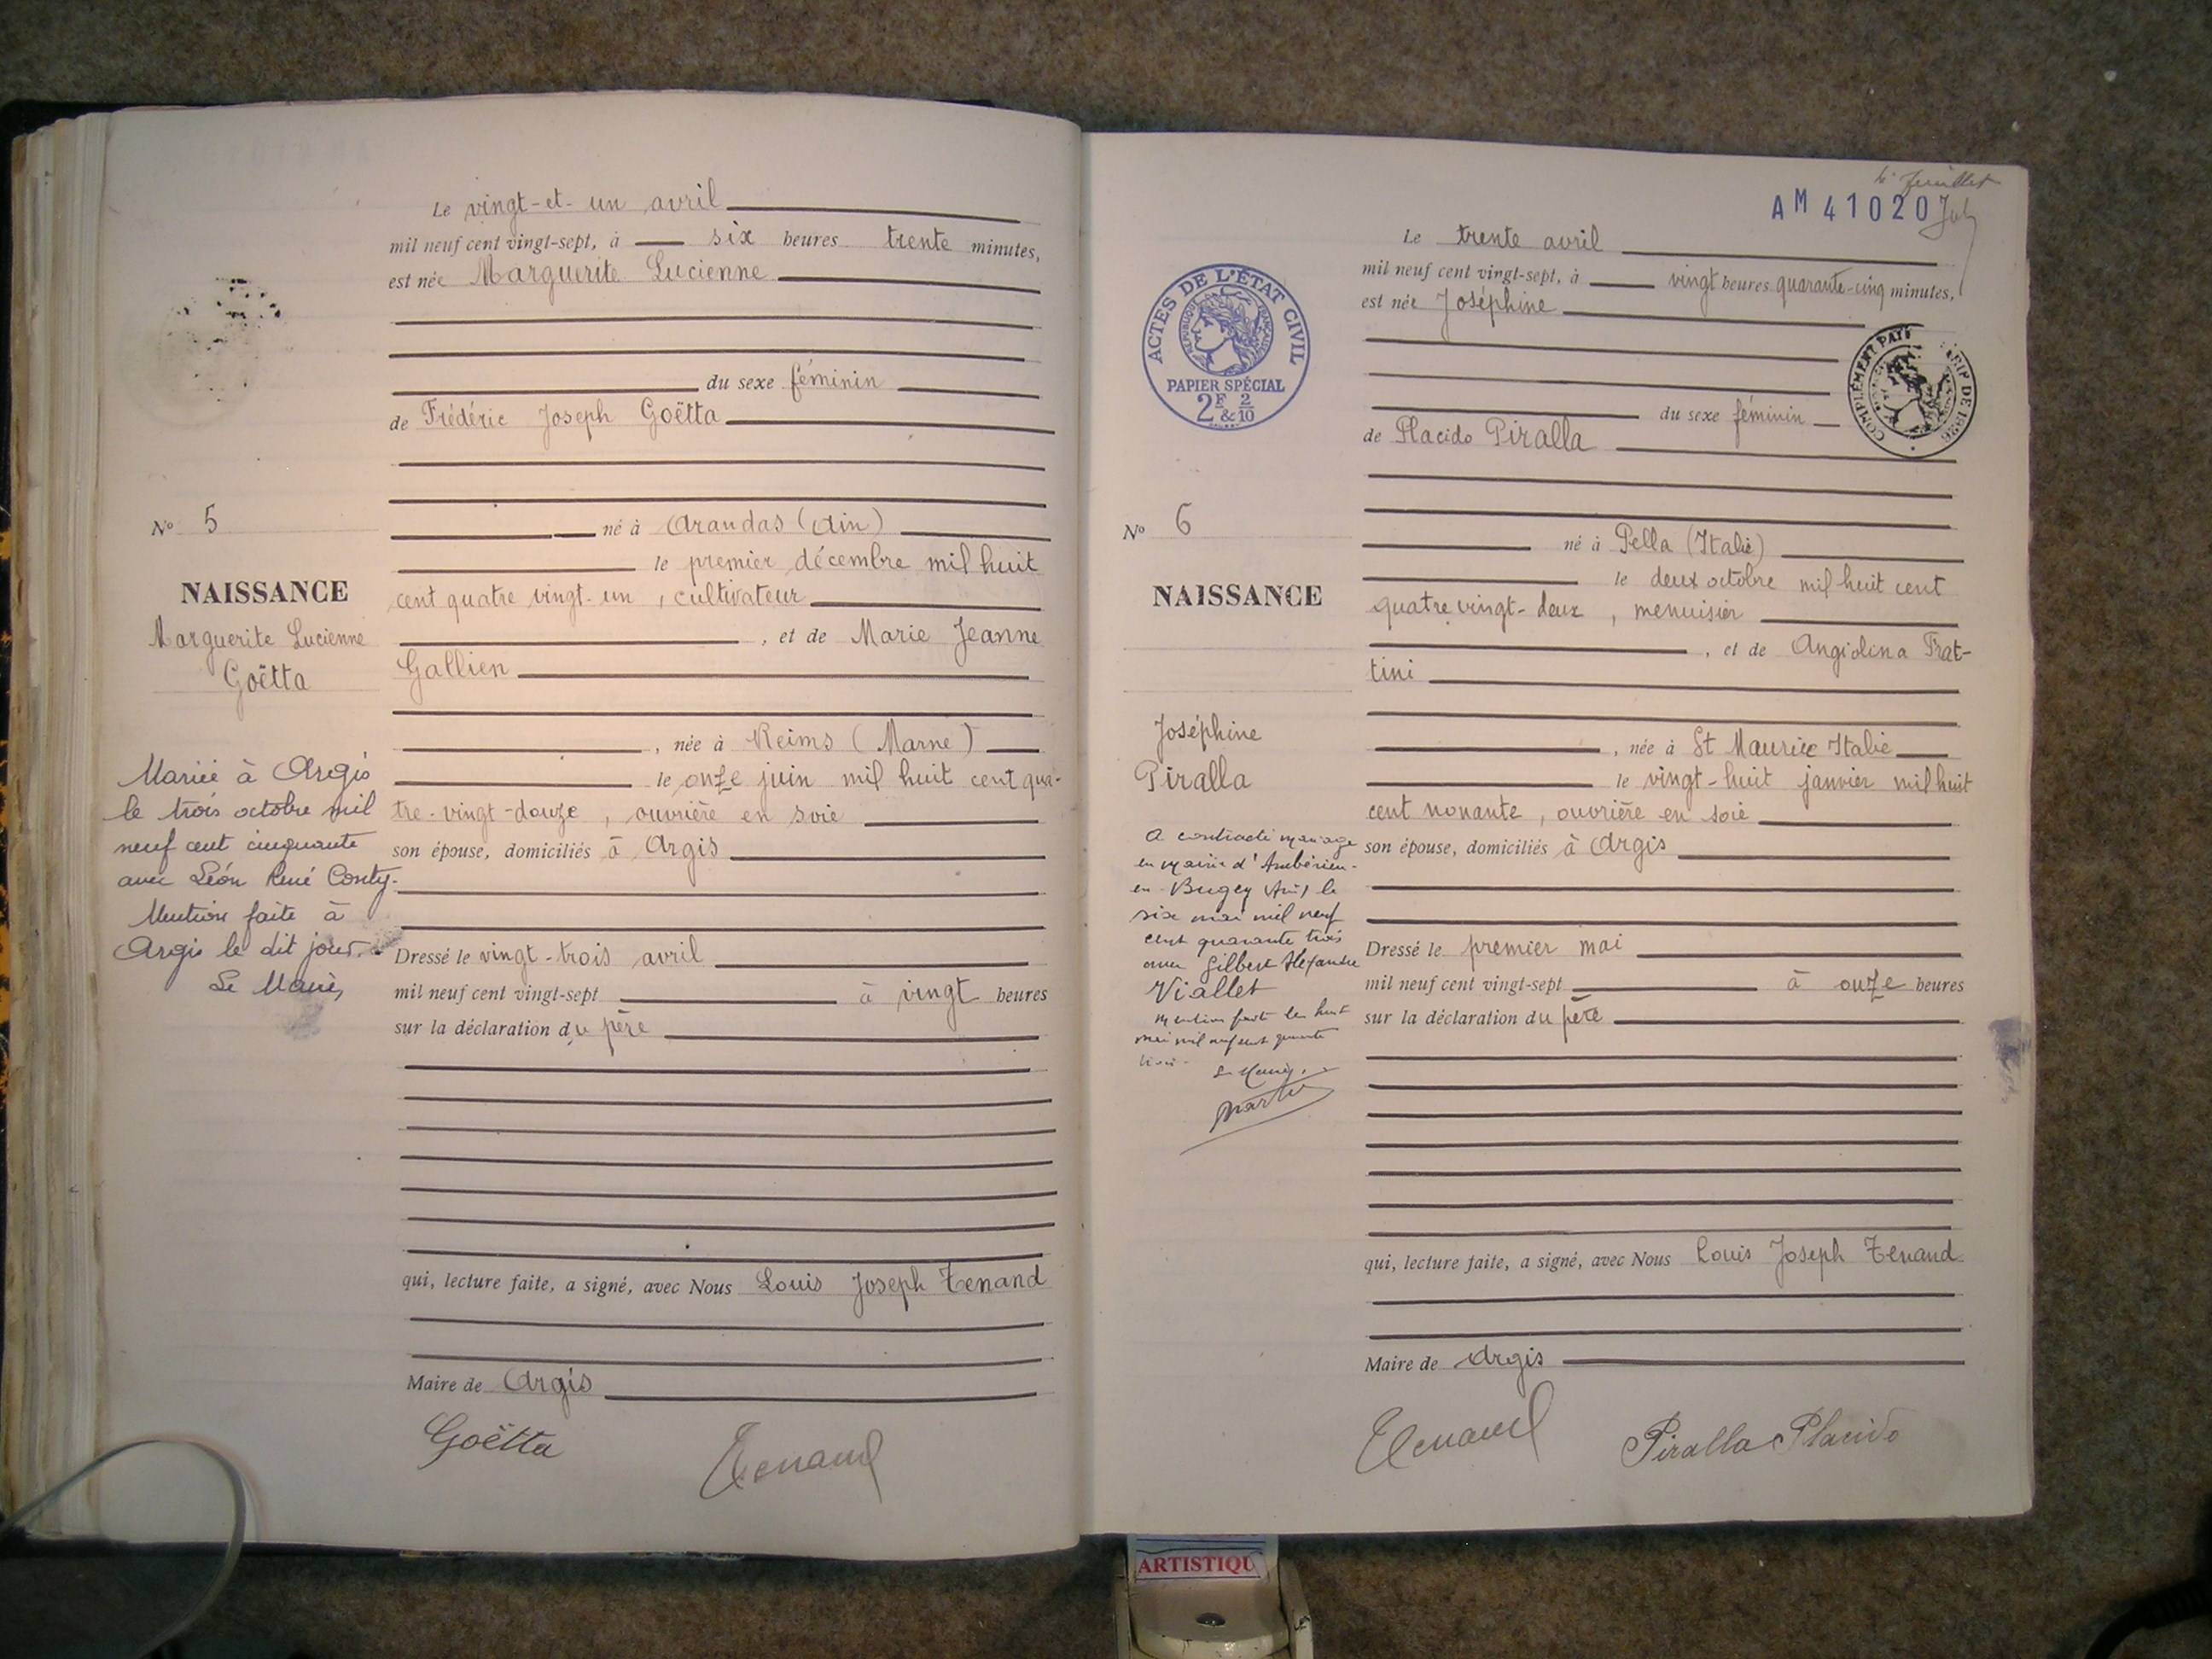 Le vingt-et-un avril
mil neuf cent vingt-sept, à six heures trente minutes,
est née Marguerite Lucienne
du sexe féminin
de Frédéric Joseph Goëtta
né à Arandas (Ain)
le premier décembre mil huit
cent quatre vingt-un, cultivateur
, et de Marie Jeanne
Gallien
, née à Reims (Marne)
le onze juin mil huit cent qua-
tre-vingt-douze, ouvrière en soie
son épouse, domiciliés à Argis
Dressé le vingt-trois avril
mil neuf cent vingt-sept à vingt heures
sur la déclaration du père
qui, lecture faite, a signé, avec Nous Louis Joseph Tenand
Maire de Argis
Goëtta Tenand
N° 5
NAISSANCE
Marguerite Lucienne
Goëtta
Mariée à Argis
le trois octobre mil
neuf cent cinquante
avec Léon René Conty.
Mention faite à
Argis le dit jour.
Le Maire,
4e feuillet
AM 41020
Le trente avril
mil neuf cent vingt-sept, à vingt heures quarante-cinq minutes,
est née Joséphine
du sexe féminin
de Placido Piralla
né à Pella (Italie)
le deux octobre mil huit cent
quatre vingt-deux, menuisier
, et de Angiolina Frat-
tini
, née à St Maurice Italie
le vingt-huit janvier mil huit
cent nonante, ouvrière en soie
son épouse, domiciliés à Argis
Dressé le premier mai
mil neuf cent vingt-sept à onze heures
sur la déclaration du père
qui, lecture faite, a signé, avec Nous Louis Joseph Tenand
Maire de Argis
Tenand Piralla Placido
ACTES DE L'ÉTAT CIVIL
RÉPUBLIQUE FRANÇAISE
PAPIER SPÉCIAL
2F & 2/10
COMPLÉMENT PAYÉ DE 1926
N° 6
NAISSANCE
Joséphine
Piralla
A contracté mariage
en mairie d'Ambérieu-
en-Bugey (Ain) le
six mai mil neuf
cent quarante trois
avec Gilbert Alexandre
Viallet
Mention faite le huit
mai mil neuf cent quarante
trois.
Le Maire,
ARTISTIQU